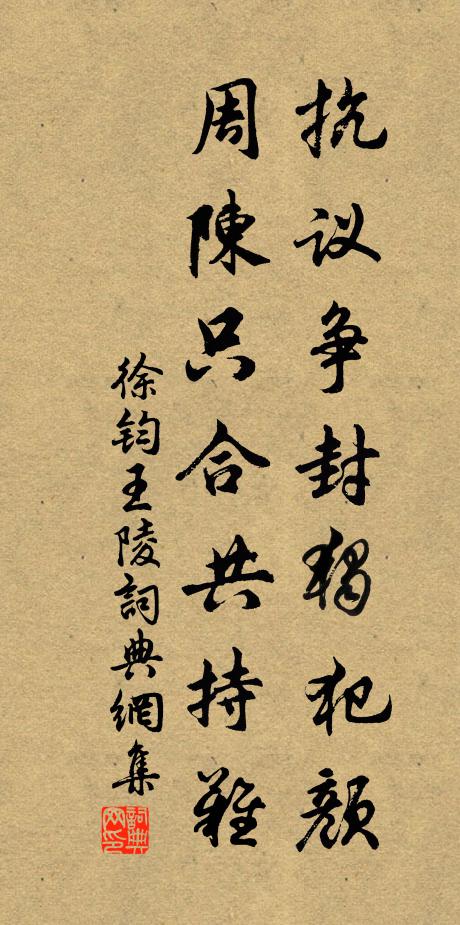 抗议争封独犯颜
周陳只合共持難
徐钧王陵詞典網集
詞典网印